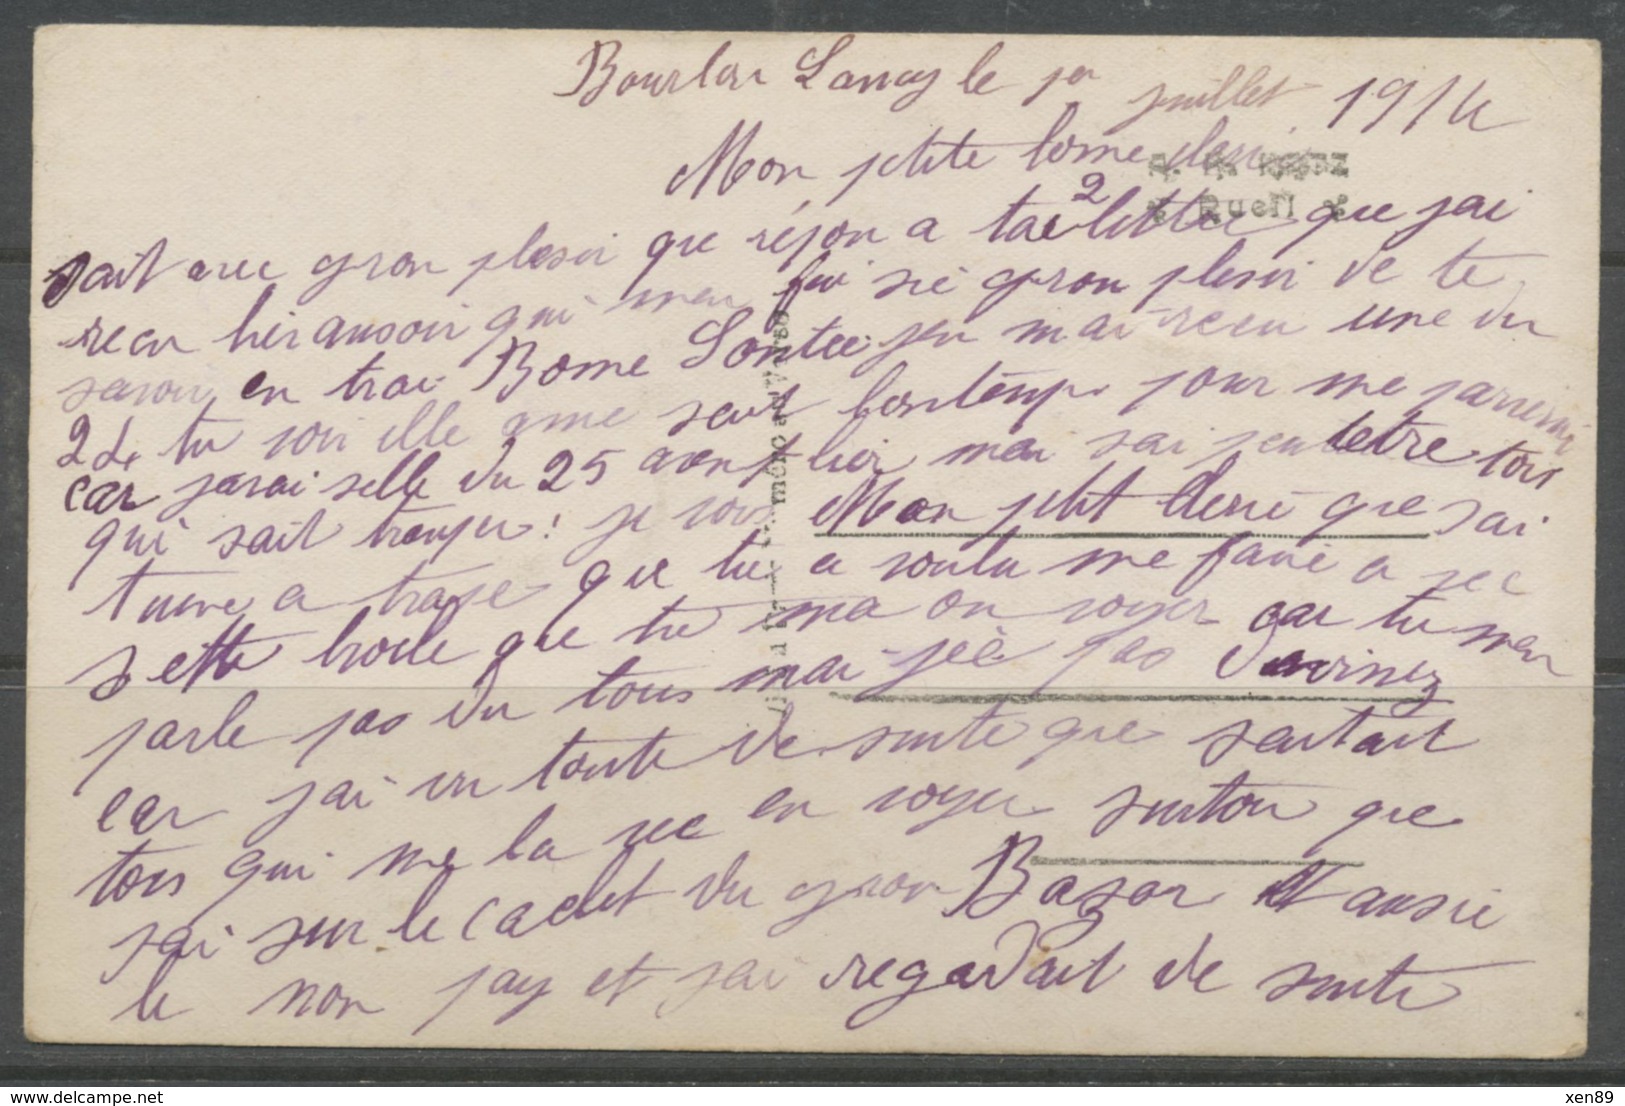 Bourbon Lancy le 1er juillet 1914
Mon ptite
sait avec gron plesir que réjon a tae 2 lettre que jai
Rueil
recu hier ausoir qui men fai sie gron plesir de te
savoir en trai Bome Sontee jen mai recu une du
24 tu voi elle ame seut lontemp pour me parvenir
car jarai selle du 25 avant hier mai sai peutetre tois
qui sait tronper! je vois Mon ptit cheri que sai
tune a trape que tu a voulu me faire a vec
sette boite que tu ma on voyer car tu men
parle pas du tous mai jée pas devinez
car jai vu toute de suite que saitait
tois qui me la vec en voyer surtou que
jai sur le cachet du gron Bazar et ausie
le non pay et jai regardait de suite
xen89